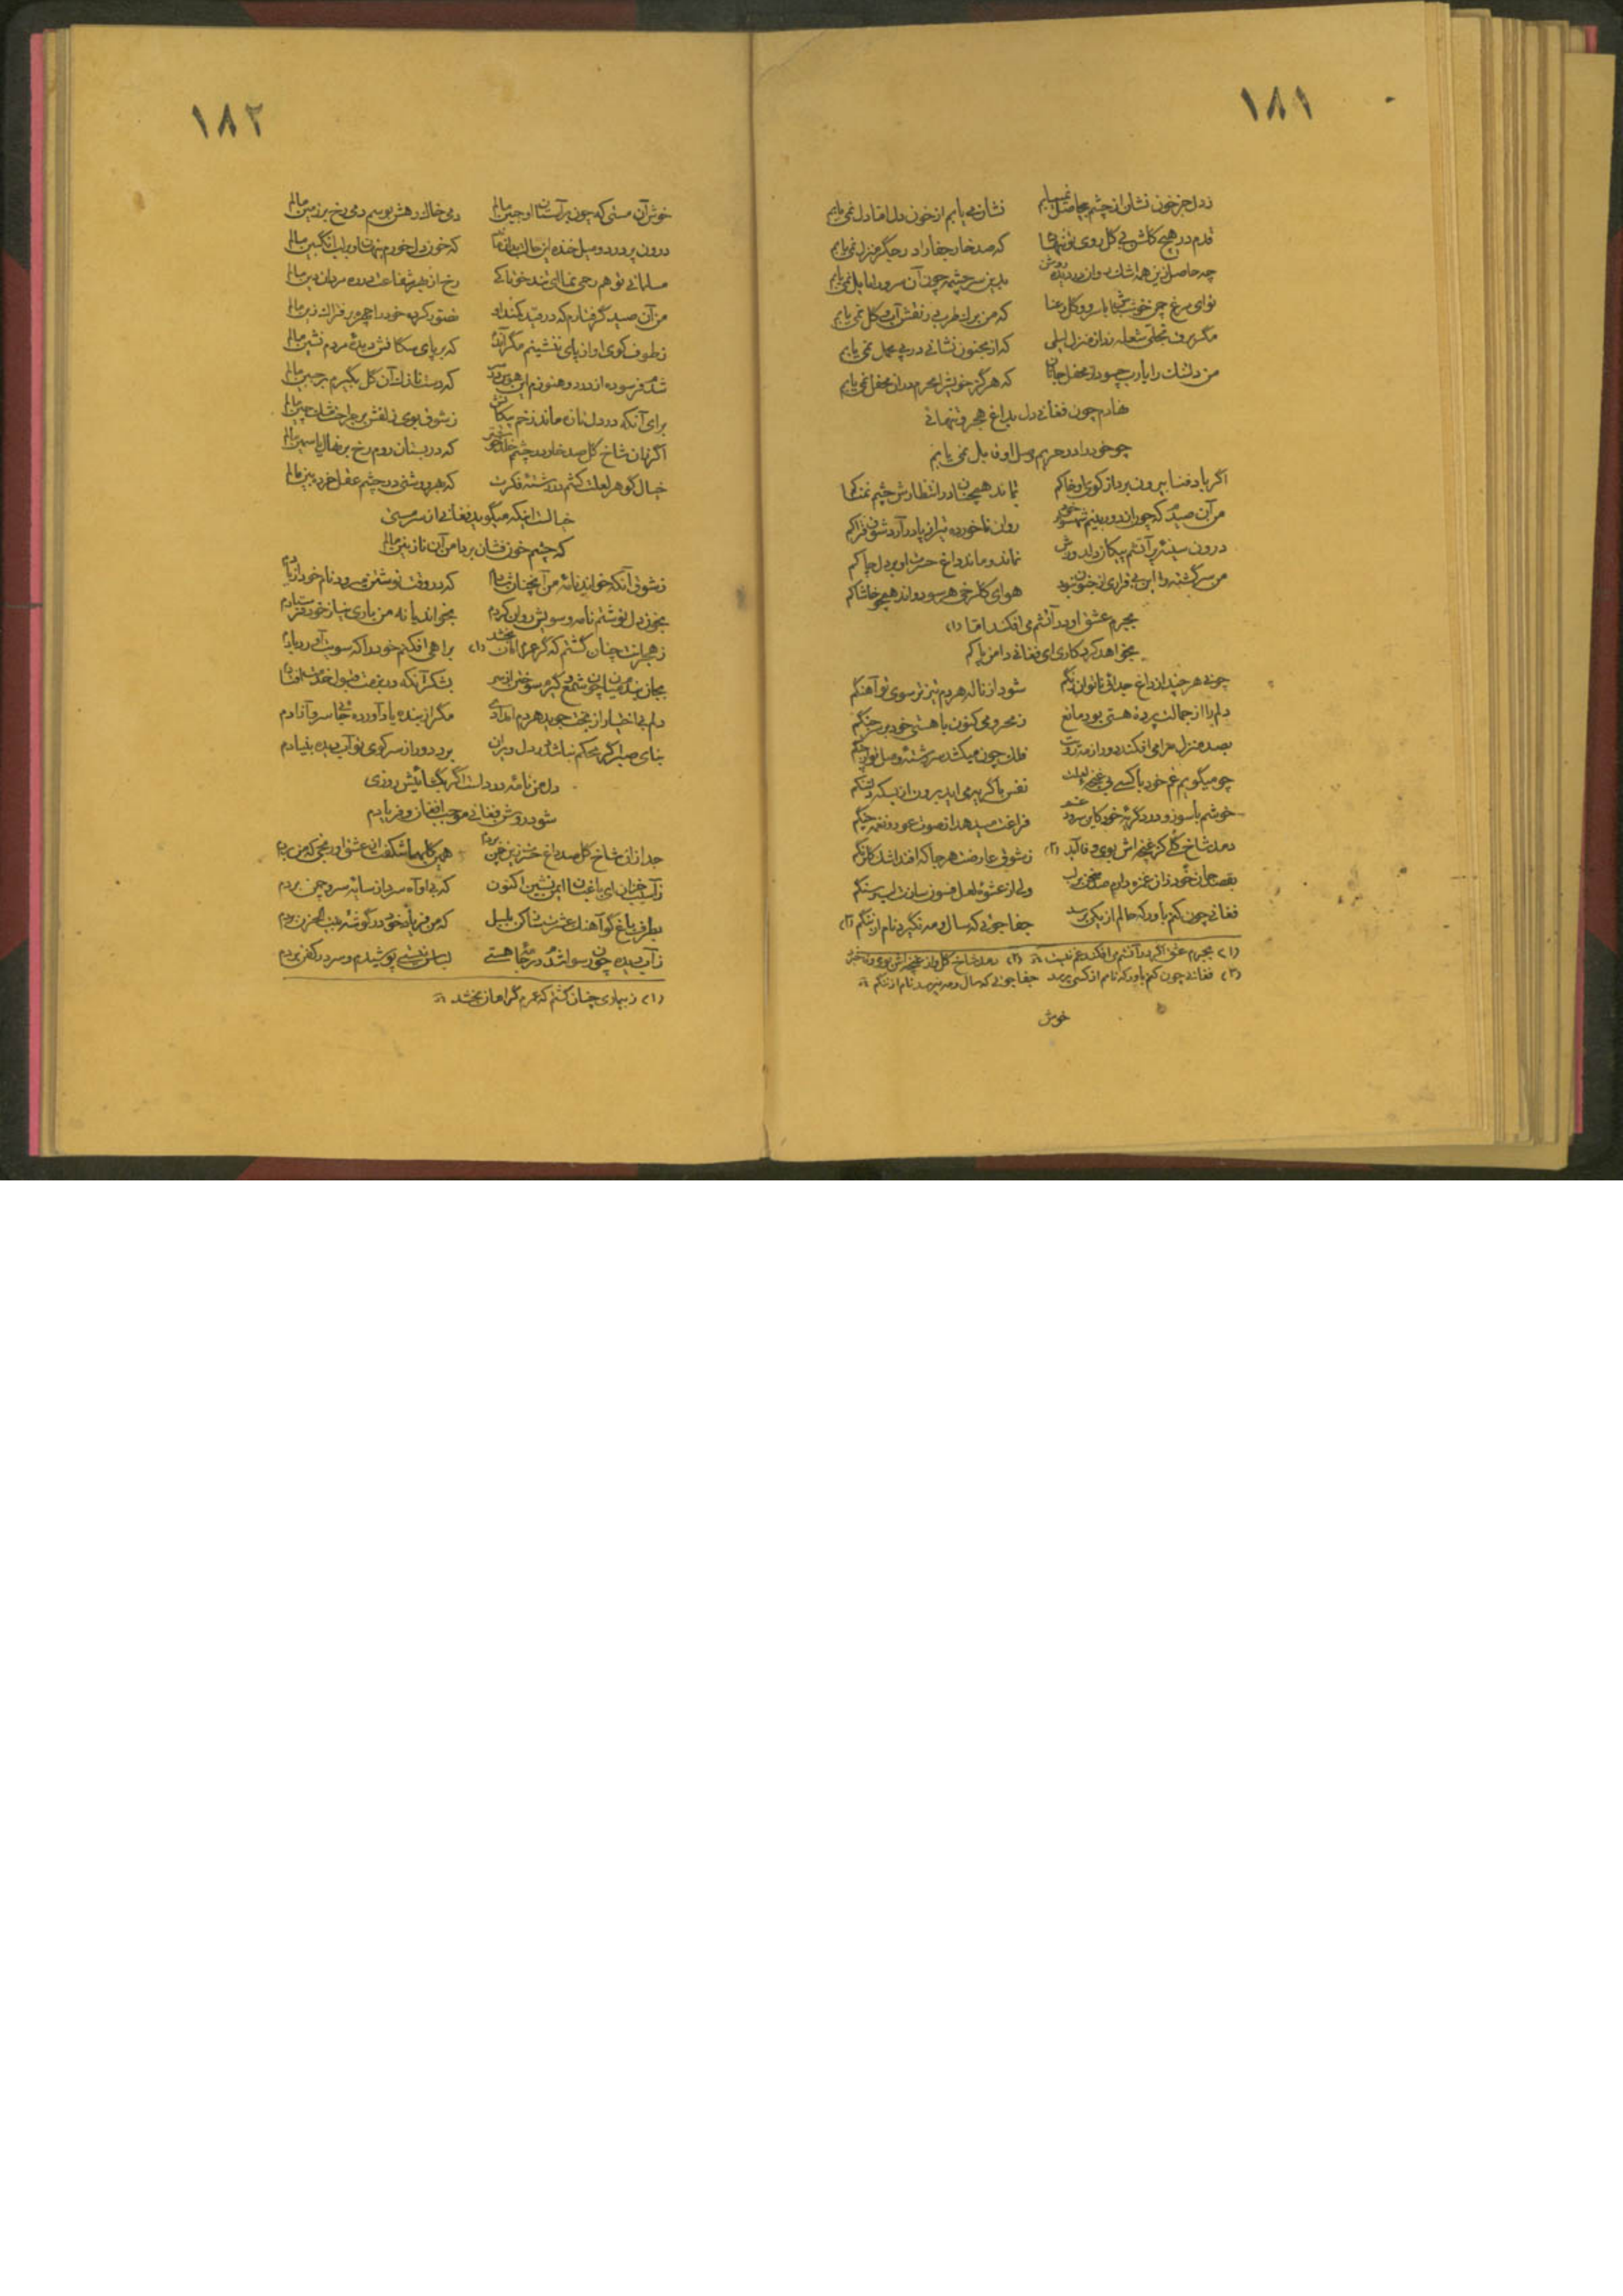 ١٨١
ز دل جز خون نشان از چشم بیحاصل نمییابم نشان می یابم از خون دل اما دل نمی یابم
قدم در هیچ گلشن بی گل روی تو ننهادم که صد خار جفا را در جگر منزل نمی یابم
چه حاصل زین همه اشک روان در دیده بدین سرچشمه چون آن سرو را مایل نمی یابم
نوای مرغ چون خوش با سرو و گل رعنا که من برگ طرب در نقش آب و گل نمی یابم
مگر برق تجلی شعله زد از منزل لیلی که از مجنون نشانی در پی محمل نمی یابم
من دلتنگ را یارب چه سود از محفل جانان که هرگز خویش را محرم در آن محفل نمی یابم
نهادم چون فغانی دل بداغ هجر و تنهائی
چو خود را در حریم وصل او قابل نمی یابم
اگر باد فنا بیرون برد از کوی او خاکم نماند همچنان در انتظارش چشم نمناکم
من آن صیدم که چون از دور بینم شهسوار خود روان ناخورده تیر از پا در آرد شوق فتراکم
درون سینه پر آتشم پیکان دلدوزش نماند و ماند داغ حسرت او بر دل چاکم
من سرگشته را این بی قراری از جنون نبود هوای گلرخی هر سو دواند همچو خاشاکم
بجرم عشق او در آتشم می افکند اما (١)
بخواهد کرد کاری ای فغانی دامن پاکم
چو نی هر چند از داغ جدائی ناتوان رنگم شود از ناله هر دم تیزتر سوی تو آهنگم
دلم را از جمالت پردهٔ هستی بود مانع ز محرومی کنون با هستی خود بر سر جنگم
بصد منزل مرا می افکند دور از مه رویت فلک چون میکشد سررشتهٔ وصل تو در چنگم
چو میگویم غم خود با کسی بی غنچهٔ لعلت نفس با گریه می آید برون از بسکه دلتنگم
خوشم با سوز و درد گریهٔ خود کاین سرود غم فراغت میدهد از صوت عود و نغمهٔ چنگم
دمد شاخ گلی کز غنچه اش بوی وفا آید (٢) ز شوق عارضت هر جا که افتد اشک گلرنگم
بقصد جان خود ناز از غمزه دارم صد سخن بر لب ولی از عشوهٔ لعل فسون سازت لب سنگم
فغانی چون کنم باور که حالم از یکی پرسد جفا جوئی که سال و مه نگیرد نام از ننگم (٣)
(١) بجرم عشق اگر در آتشم می افکند غم نیست (٢) دمد شاخ گل و از غنچه اش بوی
(٣) فغانی چون کنم باور که نامم از کسی پرسد جفا جوئی که سال و مه نپرسد نام از ننگم
خوش
١٨٢
خوش آن مستی که چون بر آستان او جبین مالم دمی خاک رهش بوسم دمی رخ بر زمین مالم
درون پر درد و میل خنده که خون دل خورم پنهان و بر لب انگبین مالم
مسلمانی تو هم رحمی رخ از بهر شفاعت در ره مردان دین مالم
من آن صید گرفتارم که در قید کمند او تصور کرده خود را چهره بر فتراک زین مالم
ز طوف کوی او از پای ننشینم مگر که بر پای سگانش دیدهٔ مردم نشین مالم
شدم فرسوده از درد و هنوزم این هوس که دست نازک آن گل بگیرم بر جبین مالم
برای آنکه در دل تازه ماند زخم پیکانش ز شوق بوی زلفش بر جراحت مشک چین مالم
اگر زان شاخ گل صد خار در چشم که در بستان روم رخ بر نهال یاسمین مالم
خیال گوهر لعلت کشم در رشتهٔ فکرت که بهر روشنی در چشم عقل خرده بین مالم
خیالست اینکه میگوید فغانی از سر مستی
که چشم خون فشان بر دامن آن نازنین مالم
ز شوق آنکه خواند نامهٔ من آنچنان شادم که در وقت نوشتن می رود نام خود از یادم
بخون دل نوشتم نامه و سویش روان کردم بخواند یا نه من باری نیاز خود فرستادم
ز هجرانت چنان گشتم که گر عمرم امان بخشد (١) براهی افکنم خود را که سویت آورد بادم
بجان بندم میان چون شمع و گیرم سوختن از سر بشکر آنکه در بزمت قبول خدمت افتادم
دلم بی اختیار از بخت جوید هر دم امدادی مگر از بنده یاد آورده جائی سرو آزادم
بنای صبر اگر محکم نباشد در دل ویران برد دور از سر کوی تو آب دیده بنیادم
دل من نامهٔ دردست اگر بگشائیش روزی
شود روشن فغانی موجب افغان و فریادم
جدا زان شاخ گل صد داغ حسرت زین چمن بردم همین گلها شکفت از عشق او رنجی که من بردم
ز آسیب خزان ای باغبان ایمن نشین اکنون که بی او آه سرد از سایهٔ سرو چمن بردم
بطرف باغ گو آهنگ عشرت ساز کن بلبل که من فریاد خود در گوشهٔ بیت الحزن بردم
ز آب دیده چون رسوا شدم در جامهٔ هستی لباس نیستی پوشیدم و سر در کفن بردم
(١) ز بیماری چنان گشتم که عمرم گر امان بخشد